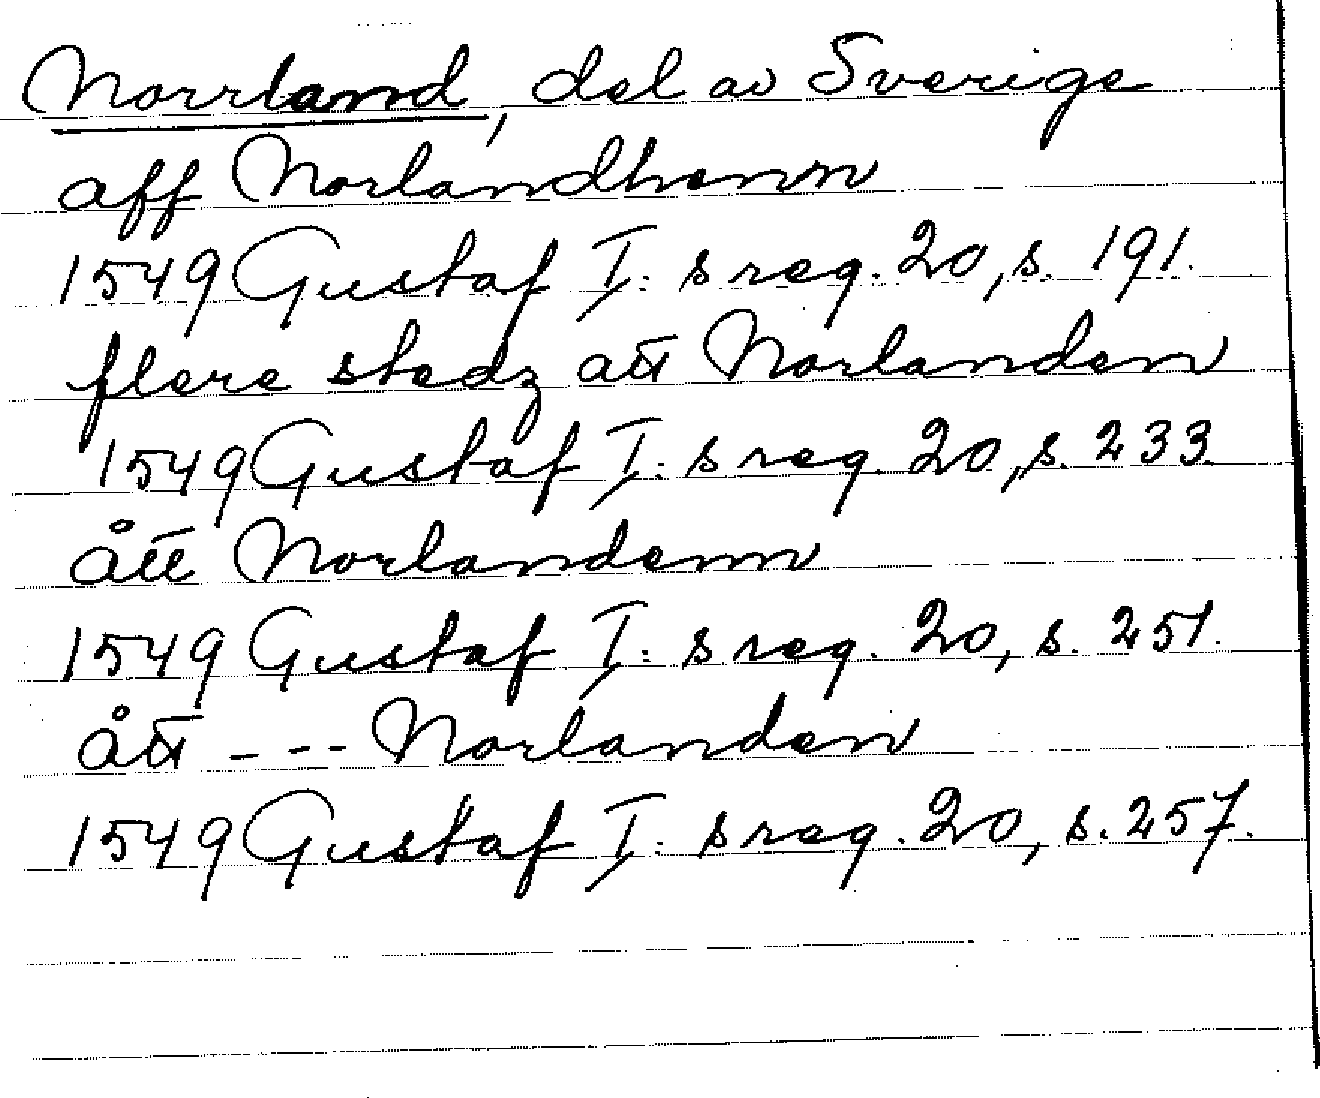 Norrland, del av Sverige
aff Norlandhenn
1549 Gustaf I:s reg. 20, s. 191.
flere stedz att Norlanden
1549 Gustaf I:s reg. 20, s. 233.
ått Norlandenn
1549 Gustaf I:s reg. 20, s. 251.
ått --- Norlanden
1549 Gustaf I:s reg. 20, s. 257.